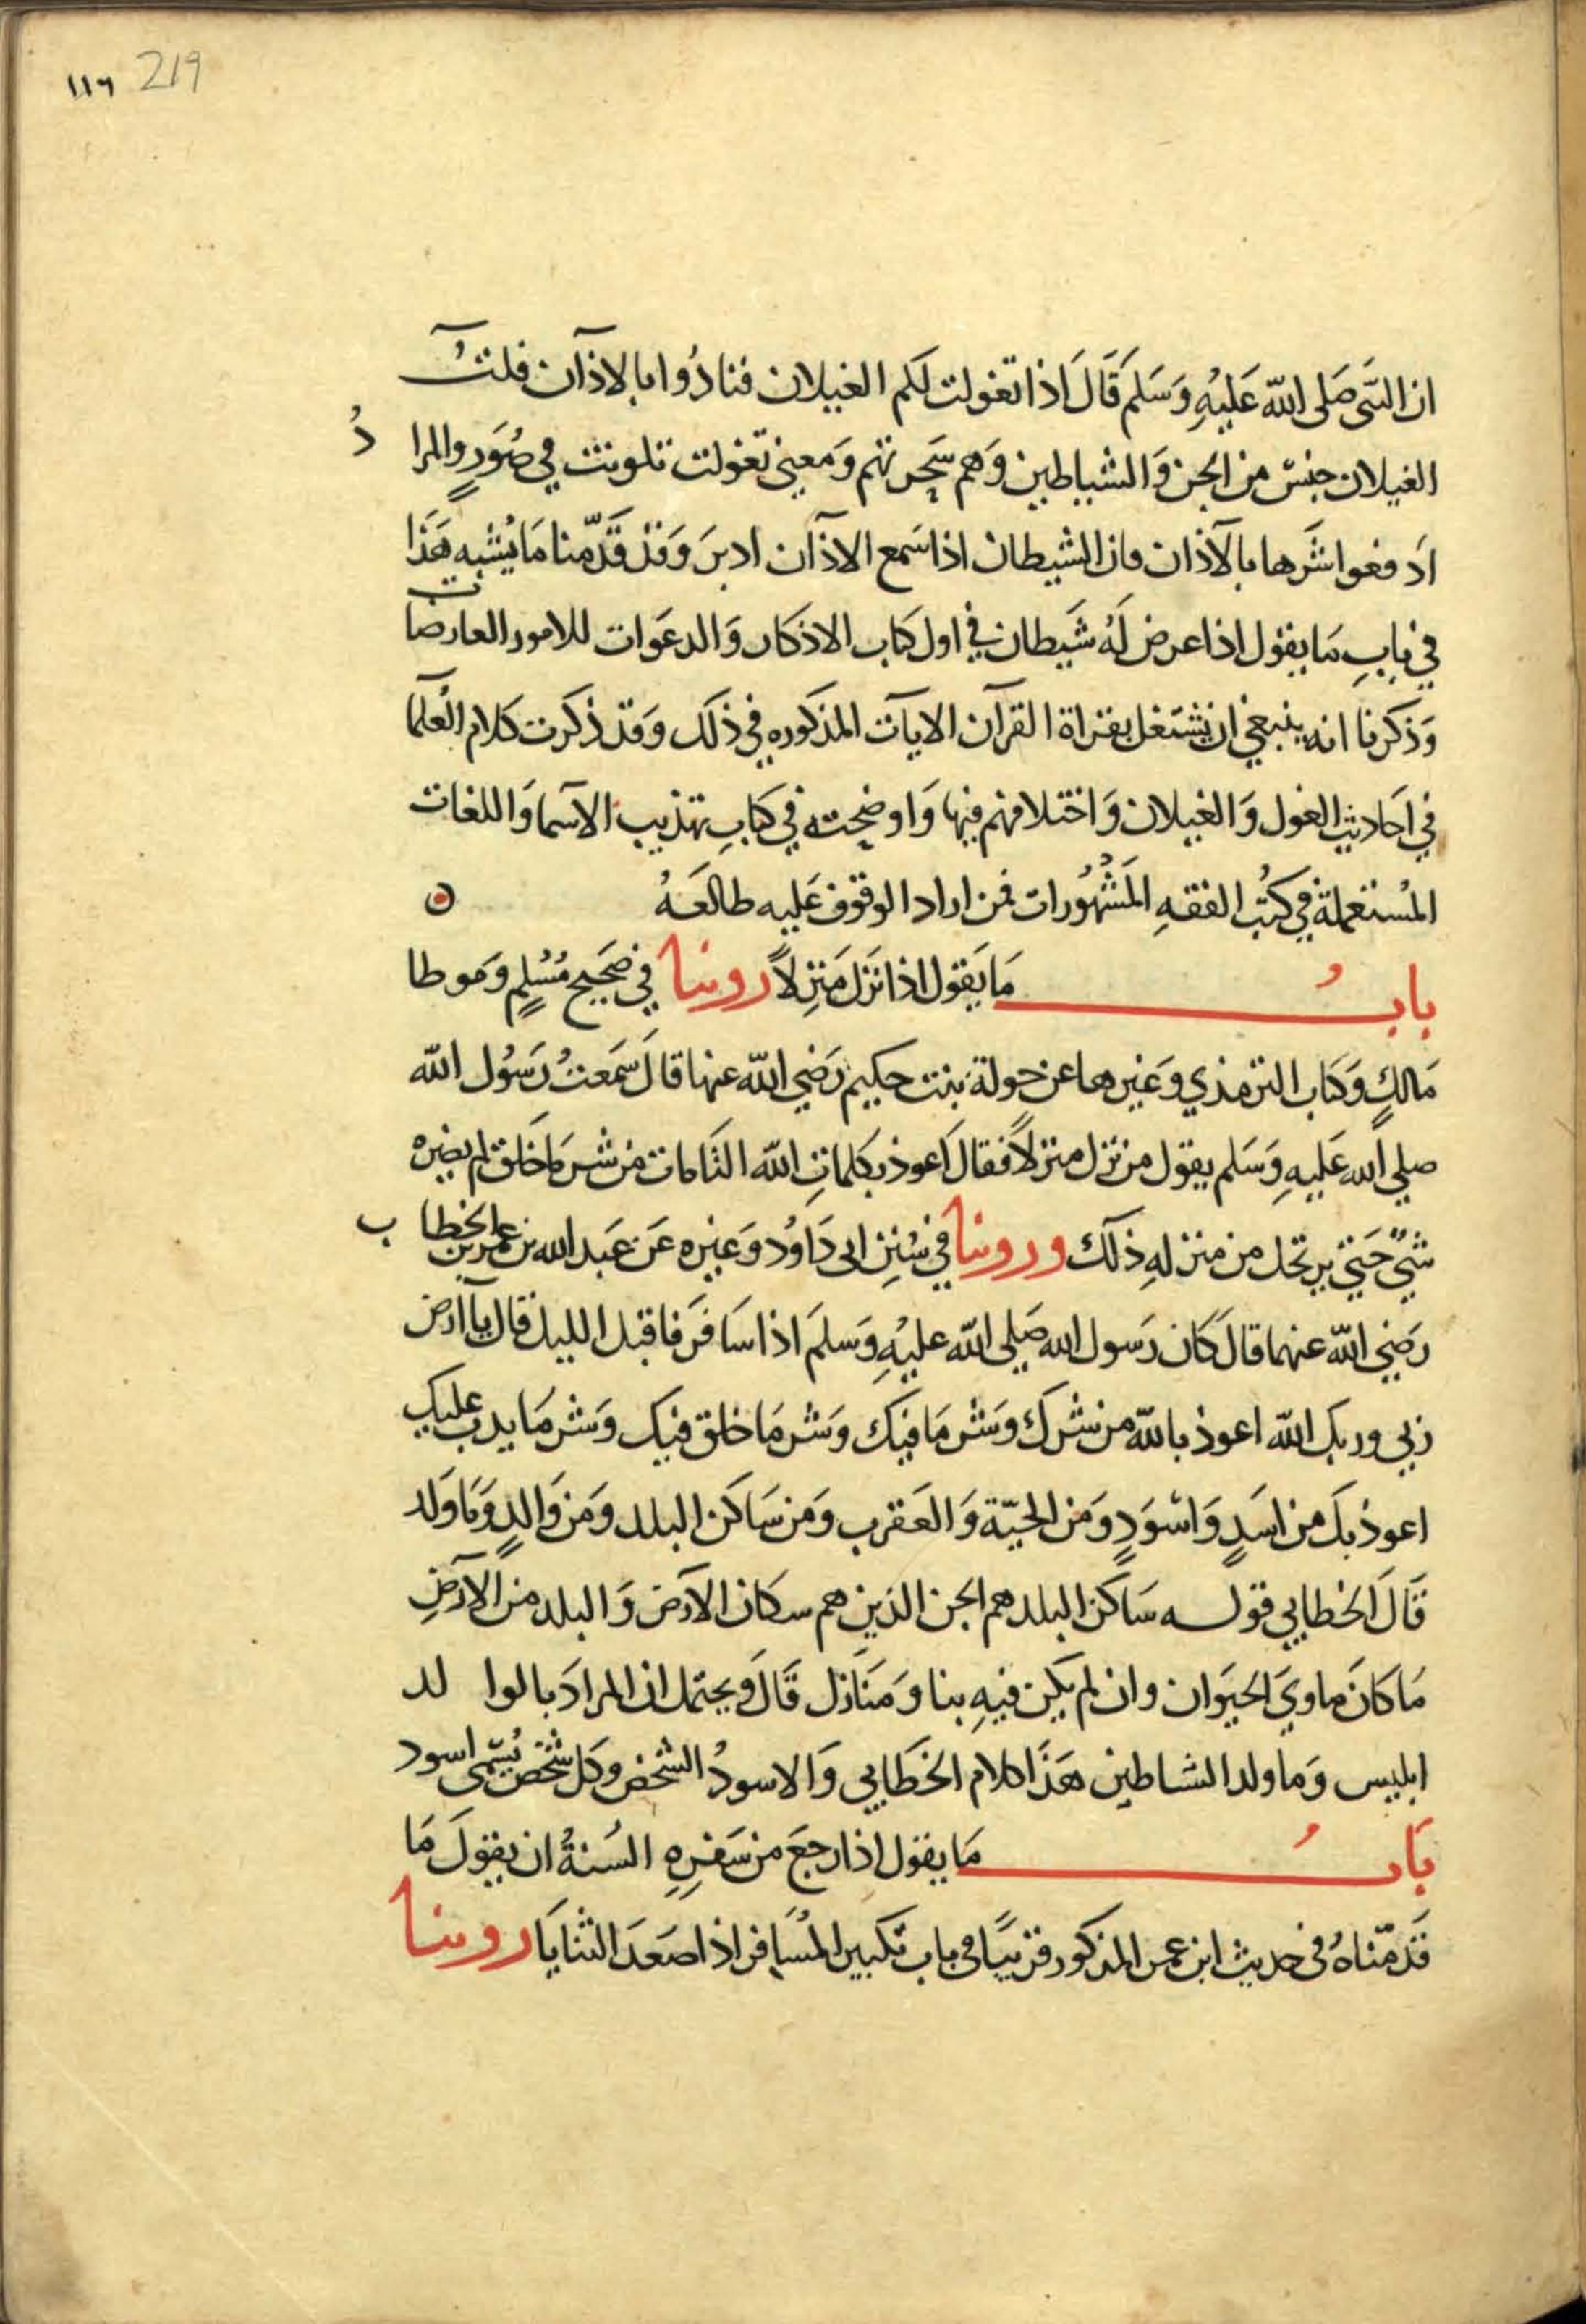 ١١٦ 219
ان النبى صَلى الله عَليْهِ وَسَلمَ قَالَ اذا تغولت لكم الغيلان فنادُوا بالاذآن قلتُ
الغيلان جنسٌ من الجن وَالشياطين وَهم سَحرتهم وَمعنى تغولت تلونت في صُوَرٍ والمرادُ
ادفعوا شَرها بالآذان فان الشيطان اذا سَمع الاذآن ادبرَ وَقد قَدّمنا مَا يُشبه هَذَا
في بابِ مَا يقول اذا عرض لَهُ شَيطان في اول كتاب الاذكار وَالدعَوات للامور العارضات
وَذكرنا انه ينبغي ان يشتغل بقراة القرآن الايآت المذكوره في ذلك وَقد ذكرت كلام العُلمآ
في اَحاديث الغول وَالغيلان وَاختلافهم فيها وَاوضحته في كتابِ تهذيب الاسمآ وَاللغات
المُستعملة في كتُب الفقهِ المَشْهُورات فمن اراد الوقوف عَليه طالعَهُ ه
بابُ مَا يَقول اذا نَزل مَنزِلاً روينا في صَحيح مُسْلِمٍ وَموطا
مَالكٍ وَكتاب الترمذي وَغيرها عن خولة بنت حكيم رَضي الله عنها قالَ سَمعتُ رَسُول الله
صلي الله عَليهِ وَسَلم يقول من نَزل منزلاً فقالَ اَعوذ بكلماتِ الله التَامات من شر مَا خَلق لم يضره
شيٌ حَتي يرتحل من منزلهِ ذلك وروينا في سُنن ابى دَاوُد وَغيره عَن عَبد الله بن عمر بن الخطاب
رَضي الله عنهما قالَ كَان رَسول الله صَلي الله عليهِ وَسلمَ اذا سَافرَ فاقبَل الليل قال يآ ارض
ربي وربك الله اعوذ بالله من شرك وَشر مَا فيك وَشر مَا خلق فيك وَشر مَا يدب عليك
اعوذ بكَ من اسَدٍ وَاسْوَدٍ وَمن الحيّة وَالعَقرب وَمن سَاكن البلد وَمن وَالدٍ وَمَا وَلد
قَالَ الخطابي قولـه سَاكن البلد هم الجن الذين هم سكان الارَض وَالبلد من الارَضِ
مَا كانَ ماويَ الحيَوان وان لم يكن فيهِ بنا وَمنَازل قَالَ وَيحتمل ان المرادَ بالوالد
ابليس وَما ولد الشياطين هَذَا كلام الخَطابي وَالاسودُ الشخص وَكل شخَص يُسَمى اسود
بَابُ مَا يقول اذا رجعَ من سَفرِهِ السُنةُ ان يقولَ مَا
قَدمّناهُ فى حديث ابن عمر المذكور قريبًا فى باب تكبير المُسَافر اذا صَعدَ الثنايَا روينا